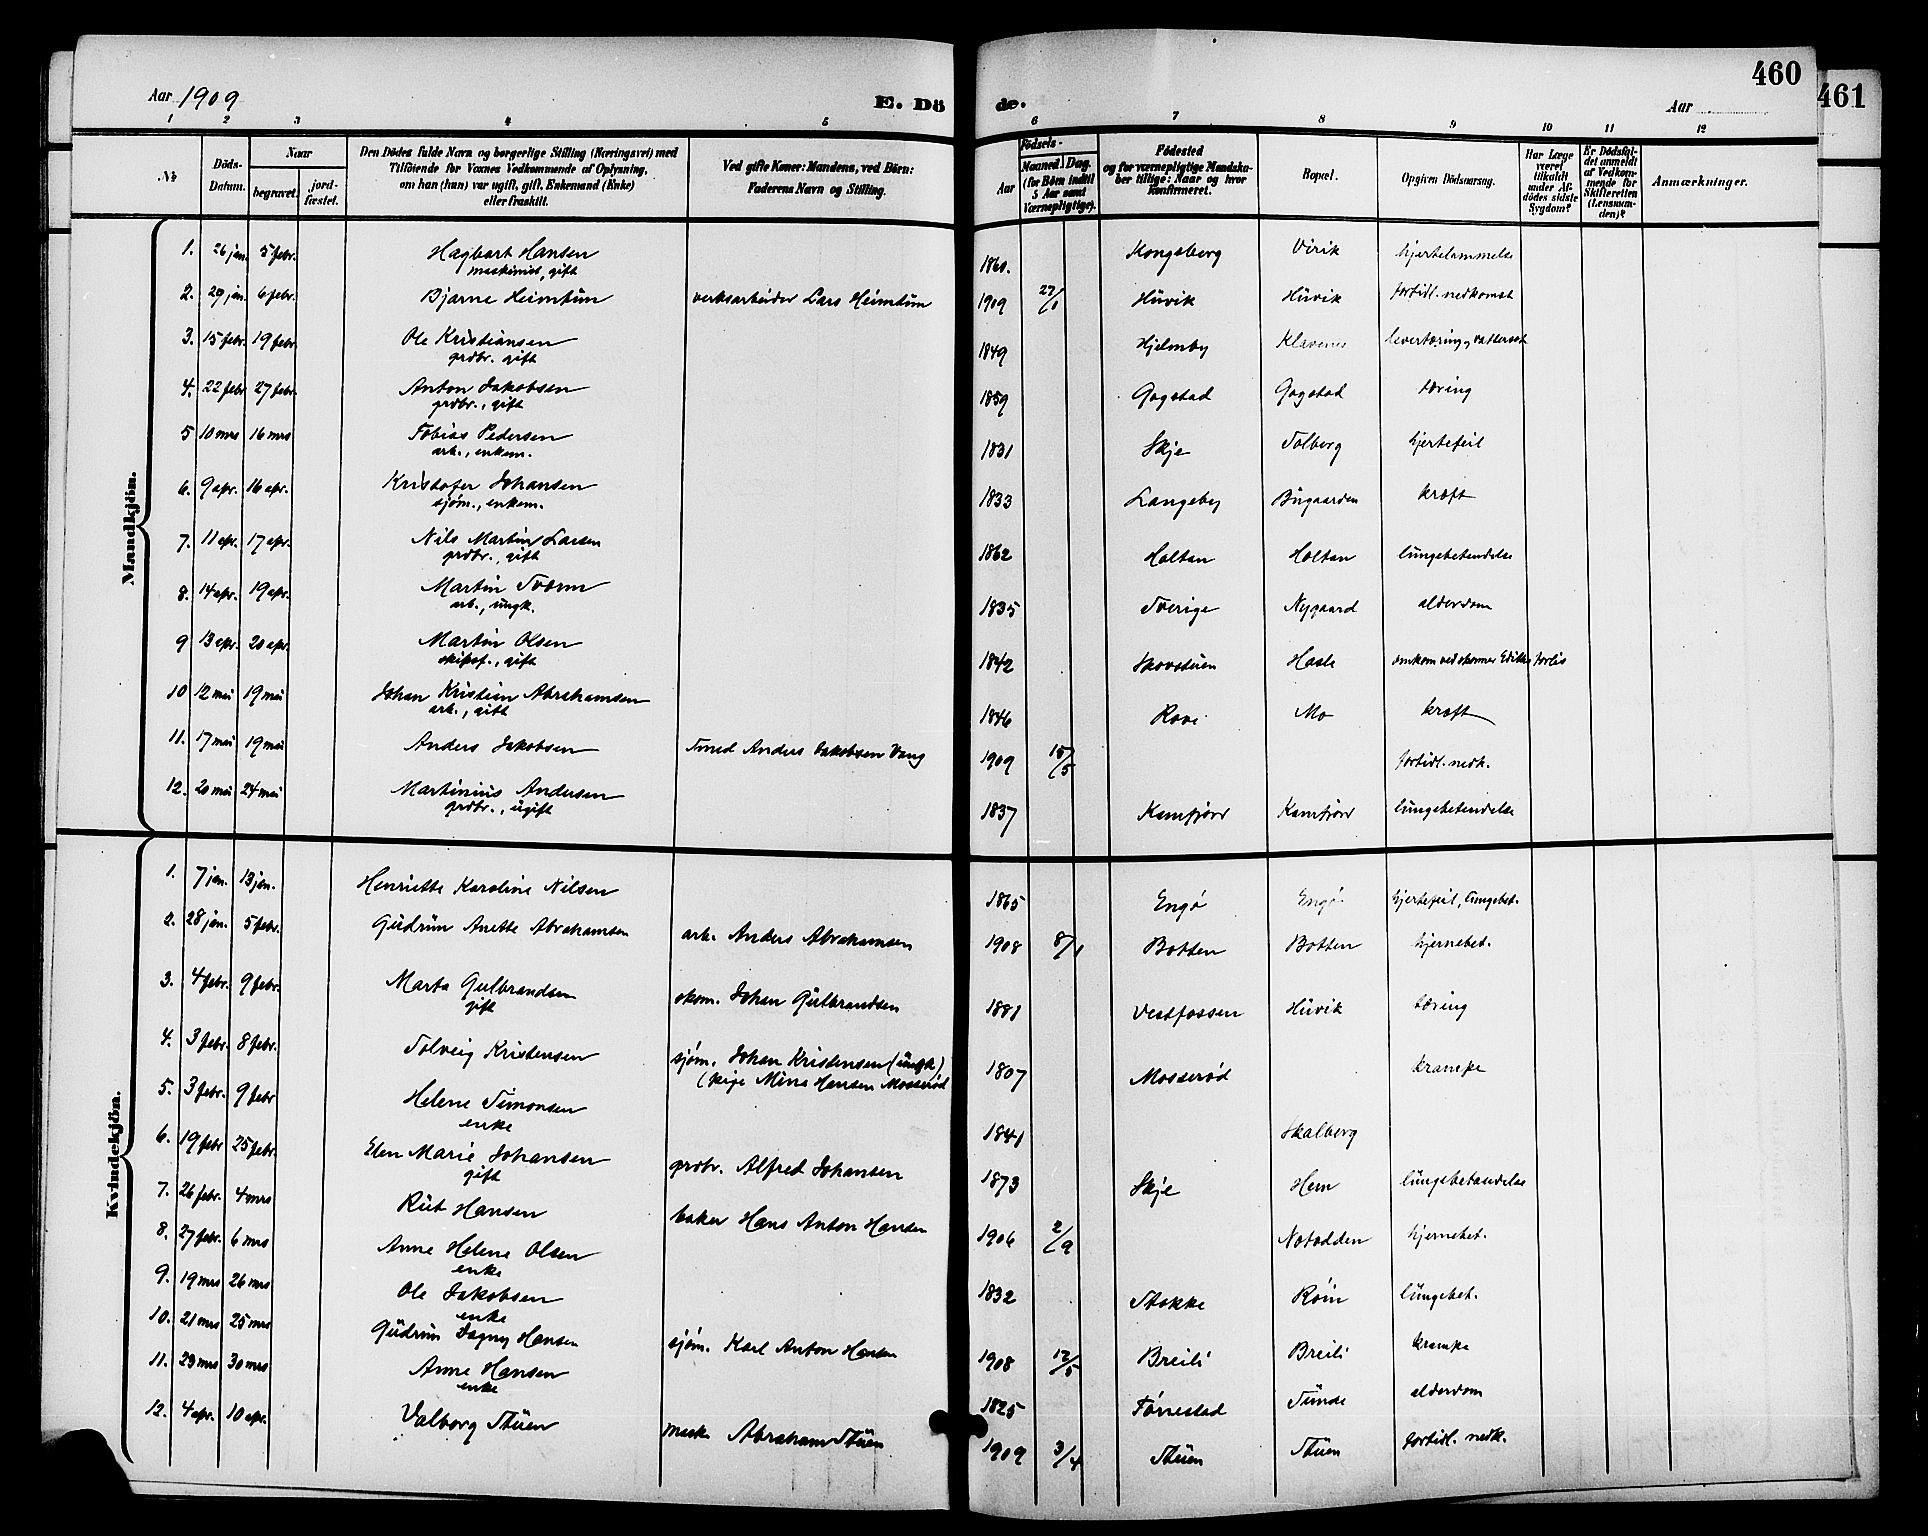 460
461
Aar 1909 E. Dö de. Aar
1 2 3 4 5 6 7 8 9 10 11 12
№ Döds-Datum. Naar begravet. jordfæstet. Den Dödes fulde Navn og borgerlige Stilling (Næringsvei) med Tilföiende for Voxnes Vedkommende af Oplysning, om han (hun) var ugift, gift, Enkemand (Enke) eller fraskilt. Ved gifte Koner: Mandens, ved Börn: Faderens Navn og Stilling. Födsels- Aar Maaned. Dag. (for Börn indtil 5 Aar samt Værnepligtige). Födested og for værnepligtige Mandskaber tillige: Naar og hvor Konfirmeret. Bopæl. Opgiven Dödsaarsag. Har Læge været tilkaldt under Afdödes sidste Sygdom? Er Dödsfaldet anmeldt af Vedkommende for Skifteretten (Lensmanden)? Anmærkninger.
Mandkjön.
1. 26 jan. 5 febr. Hagbart Hansen 1860. Kongsberg Virik hjertelammelse
maskinist, gift
2. 29 jan. 6 febr. Bjarne Heimtun verksarbeider Lars Heimtun 1909 27/1 Huvik Huvik fortidl. nedkomst
3. 15 febr. 19 febr. Ole Kristiansen 1849 Hjelmby Klavenes levertæring, vattersot
grdbr. gift
4. 22 febr 27 febr. Anton Jakobsen 1859 Gogstad Gogstad tæring
grdbr., gift
5 10 mrs 16 mrs Tobias Pedersen 1831 Skje Solberg hjertefeil
arb., enkem.
6. 9 apr. 16 apr. Kristofer Johansen 1833 Langeby Bugaarden kræft
sjøm., enkem.
7. 11 apr. 17 apr. Nils Martin Larsen 1862 Holtan Holtan lungebetendelse
grdbr., gift
8. 14 apr. 19 apr. Martin Sværm 1835 Sverige Nygaard alderdom
arb., ungk.
9 13 apr. 20 apr. Martin Olsen 1842 Skovstuen Hasle omkom ved skonner Ediths forlis
skipsf., gift
10 12 mai 19 mai Johan Kristian Abrahamsen 1846 Rove Mo kræft
arb., gift
11. 17 mai 19 mai Anders Jakobsen Smed Anders Jakobsen Vang 1909 15/5 fortidl. nedk.
12. 20 mai 24 mai Martinius Andersen 1837 Kamfjord Kamfjord lungebetendelse
grdbr., ugift
Kvindekjön.
1. 7 jan. 13 jan. Henriette Karoline Nilsen 1865 Engø Engø hjertefeil, lungebet.
2. 28 jan. 5 febr. Gudrun Anette Abrahamsen arb. Anders Abrahamsen 1908 8/1 Botten Botten hjernebet.
3. 4 febr. 9 febr. Marta Gulbrandsen skom. Johan Gulbrandsen 1881 Vestfossen Huvik tæring
gift
4. 3 febr. 8 febr. Solveig Kristensen sjøm. Johan Kristensen (ungk) 1807 Mosserød krampe
(pige Mina Hansen Mosserød
5. 3 febr. 9 febr Helene Simonsen 1841 Skalberg
enke
6. 19 febr 25 febr. Elen Marie Johansen grdbr. Alfred Johansen 1873 Skje Hem lungebetændelse
gift
7. 26 febr. 4 mrs Rut Hansen baker Hans Anton Hansen 1906 2/9 Notodden hjernebet.
8. 27 febr. 6 mrs Anne Helene Olsen 1832 Stokke Røin lungebet.
enke
9. 19 mrs 26 mrs Ole Jakobsen
enke
10. 21 mrs 25 mrs Gudrun Dagny Hansen sjøm. Karl Anton Hansen 1908 12/5 Breili Breili krampe
11. 23 mrs 30 mrs Anne Hansen 1825 Førrestad Sunde alderdom
enke
12. 4 apr. 10 apr. Valborg Stuen mask. Abraham Stuen 1909 3/4 Stuen Stuen fortidl. nedk.